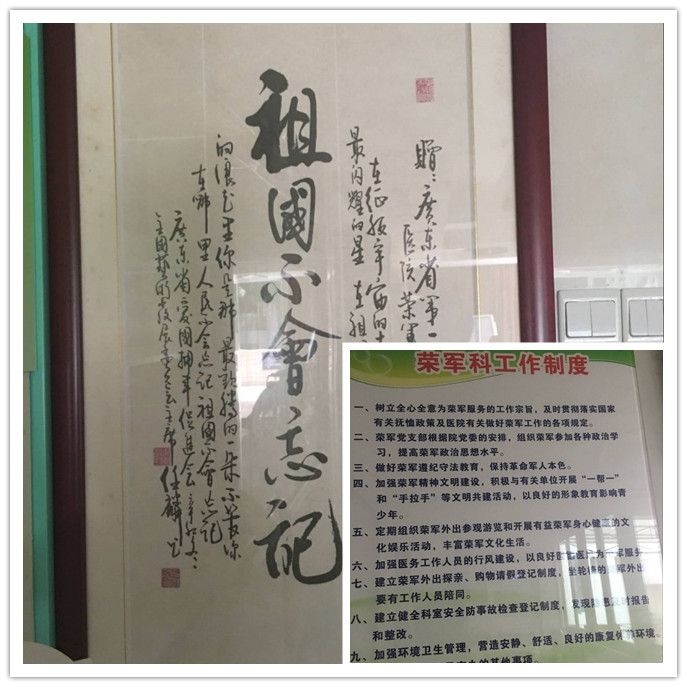 赠：广东省第一
医院荣军
在征服宇宙的大
最闪耀的星 在祖
祖國不會忘記
的浪花里
在哪里 人民不会忘记 祖国不会忘记
广东省爱国拥军促进会
主席任麟
荣军科工作制度
一、树立全心全意为荣军服务的工作宗旨，及时贯彻落实国家
有关抚恤政策及医院有关做好荣军工作的各项规定。
二、荣军党支部根据院党委的安排，组织荣军参加各种政治学
习，提高荣军政治思想水平。
三、做好荣军遵纪守法教育，保持革命军人本色。
四、加强荣军精神文明建设，积极与有关单位开展“一帮一”
和“手拉手”等文明共建活动，以良好的形象教育影响青
少年。
五、定期组织荣军外出参观游览和开展有益荣军身心健康的文
化娱乐活动，丰富荣军文化生活。
六、加强医务工作人员的行风建设，以良好医德医风为荣军服务
七、建立荣军外出探亲、购物请假登记制度，坐轮椅的荣军外出
要有工作人员陪同。
八、建立健全科室安全防事故检查登记制度，发现隐患及时报告
和整改。
九、加强环境卫生管理，营造安静、舒适、良好的康复休养环境。
的其他事项。